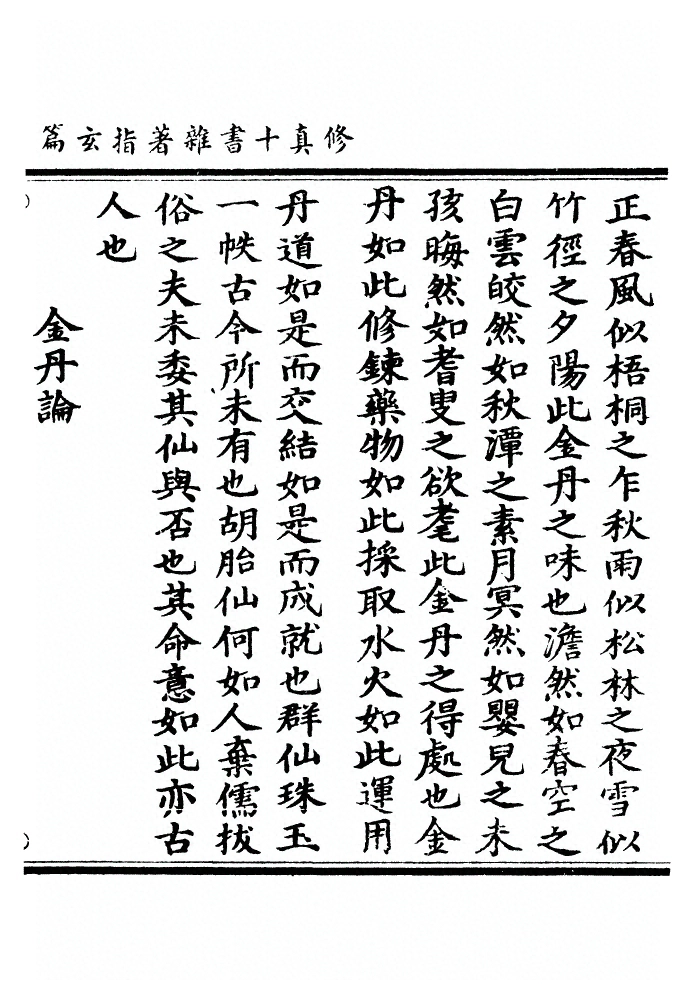 修真十書雜著指玄篇
正春風似梧桐之乍秋雨似松林之夜雪似
竹徑之夕陽此金丹之味也澹然如春空之
白雲皎然如秋潭之素月冥然如嬰兒之未
孩晦然如耆叟之欲耄此金丹之得處也金
丹如此修鍊藥物如此採取水火如此運用
丹道如是而交結如是而成就也群仙珠玉
一帙古今所未有也胡胎仙何如人棄儒拔
俗之夫未委其仙與否也其命意如此亦古
人也
金丹論